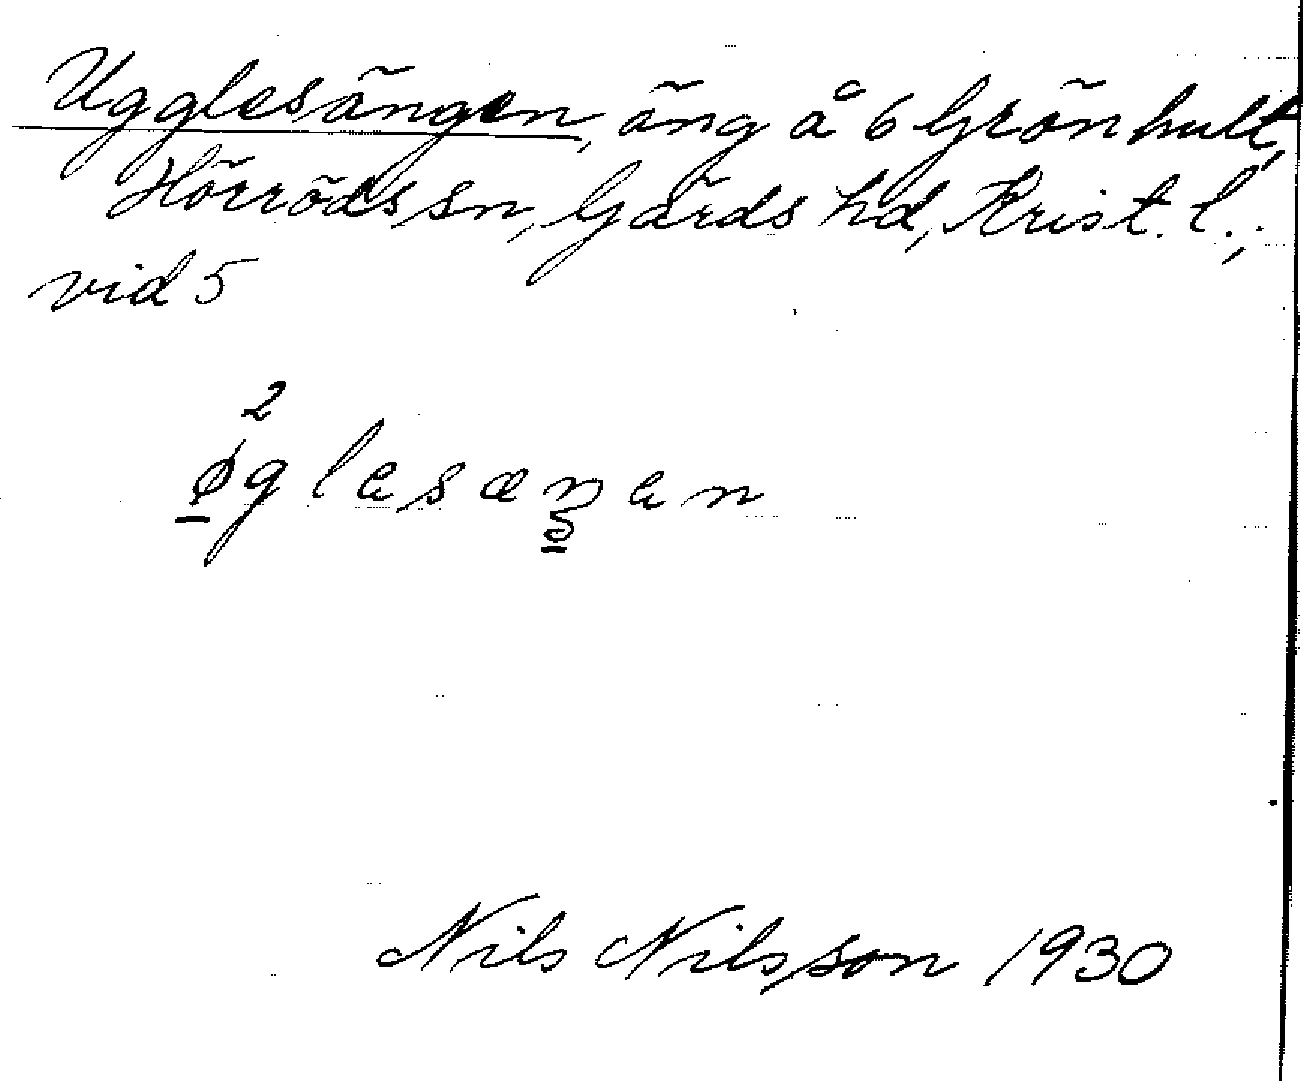 Ugglesängen, äng å 6 Grönhult,
Hörröds sn, Gärds hd, Krist. l.,
vid 5
2
øglesæŋen
Nils Nilsson 1930